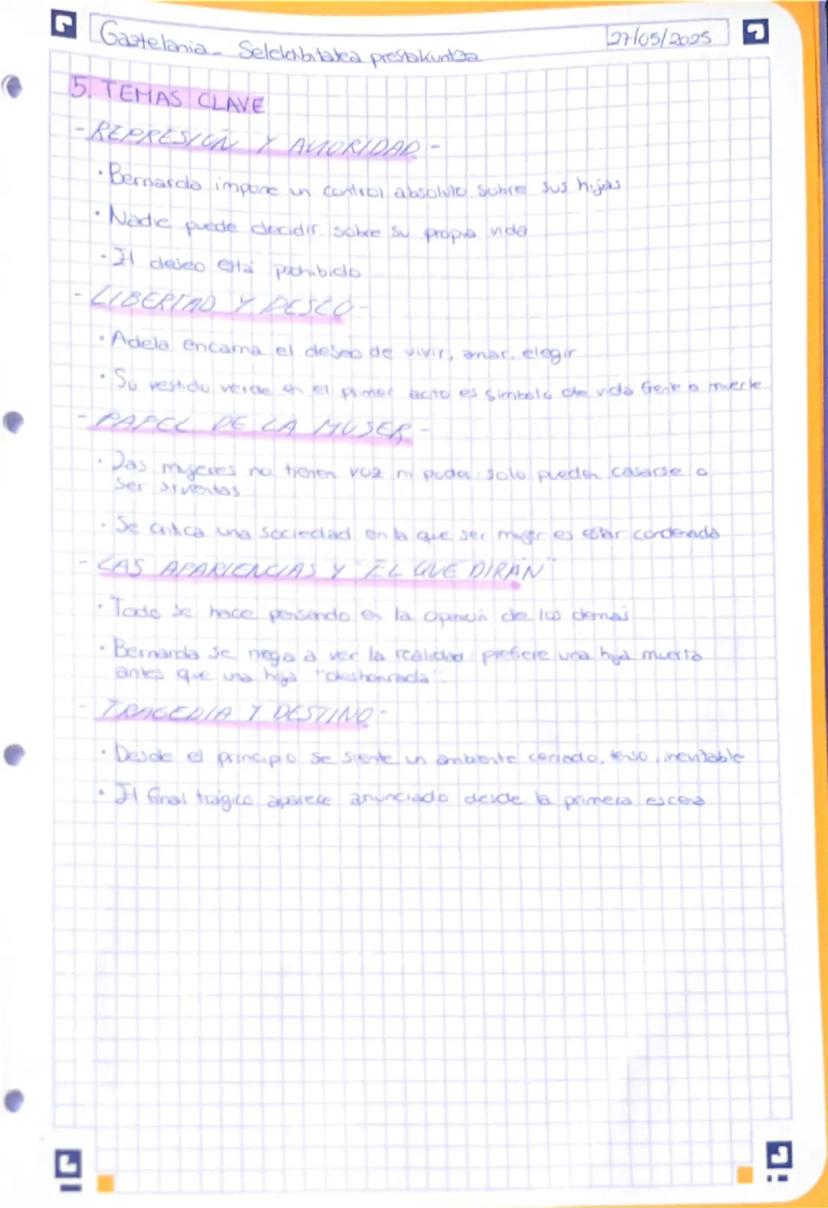 Gaztelania - Selektibitatea prestakuntza
27/05/2025
5. TEMAS CLAVE
- REPRESIÓN Y AUTORIDAD -
· Bernarda impone un control absoluto sobre sus hijas
· Nadie puede decidir sobre su propia vida
· El deseo está prohibido
- LIBERTAD Y DESEO -
· Adela encarna el deseo de vivir, amar, elegir
· Su vestido verde en el primer acto es símbolo de vida frente a muerte
- PAPEL DE LA MUJER -
· Las mujeres no tienen voz ni poder: solo pueden casarse o
ser sirvientas
· Se critica una sociedad en la que ser mujer es estar condenada
- LAS APARIENCIAS Y "EL QUE DIRÁN"
· Todo se hace pensando en la opinión de los demás
· Bernarda se niega a ver la realidad prefiere una hija muerta
antes que una hija "deshonrada".
- TRAGEDIA Y DESTINO -
· Desde el principio se siente un ambiente cerrado, tenso, inevitable
· El final trágico aparece anunciado desde la primera escena